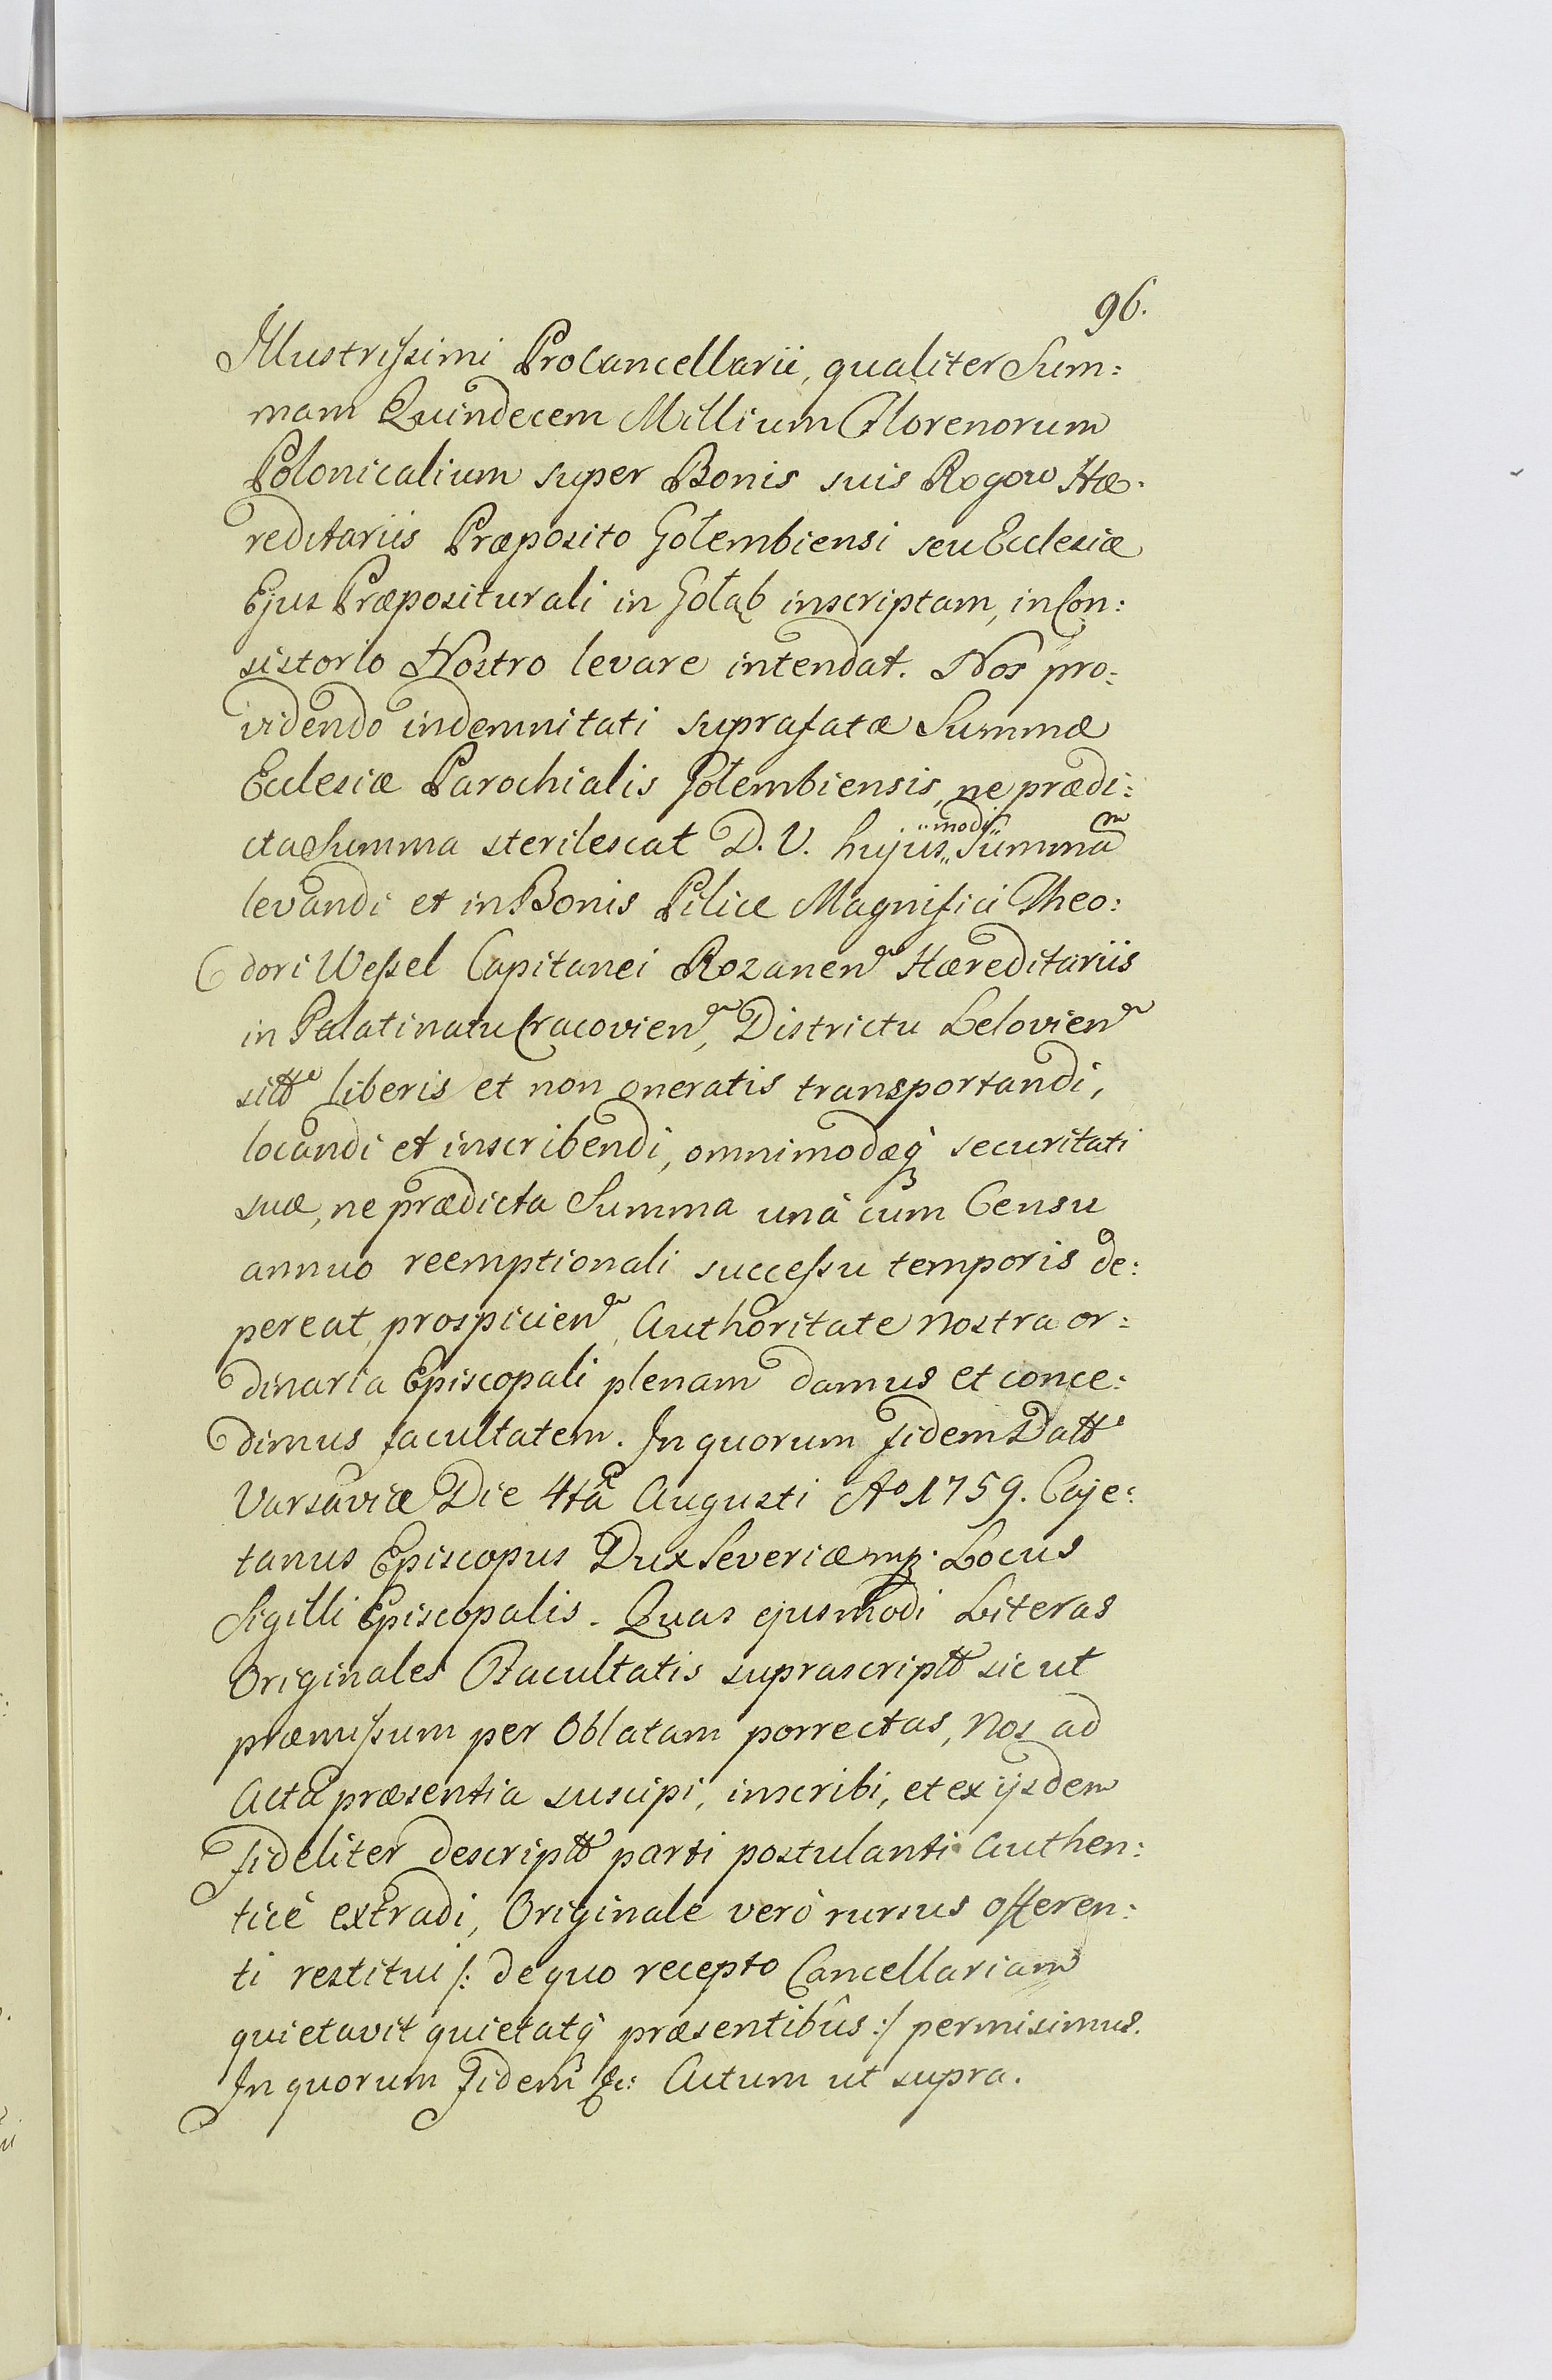 96.
Illustrissimi Procancellarii, qualiter Sum:
mam Quindecem Millium Florenorum
Polonicalium super Bonis suis Rogow Hæ:
reditariis Præposito Gołembiensi seu Ecclesiæ
Ejus Præpositurali in Gołąb inscriptam, in Con:
sistorio Nostro levare intendat. Nos pro:
videndo indemnitati suprafatæ Summæ
Ecclesiæ Parochialis Gołembiensis, ne prædi:
cta Summa sterilescat D. V. hujus„modi„ Summam
levandi et in Bonis Pilice Magnifici Theo:
dori Wessel Capitanei Rozanen Hæreditariis
in Palatinatu Cracovien, Districtu Lelovien
sitt liberis et non oneratis transportandi,
locandi et inscribendi, omnimodæq securitati
suæ, ne prædicta Summa unà cum Censu
annuo reemptionali successu temporis de:
pereat, prospicien, Authoritate nostra or:
dinaria Episcopali plenam damus et conce:
dimus facultatem. In quorum fidem Datt
Varsaviæ Die 4tâ Augusti Ao 1759. Caje:
tanus Episcopus Dux Severiæ mp. Locus
Sigilli Episcopalis. Quas ejusmodi Literas
Originales Facultatis suprascriptt sic ut
præmissum per Oblatam porrectas, Nos ad
Acta præsentia suscipi, inscribi, et ex ijsdem
fideliter descriptt parti postulanti Authen:
ticè extradi, Originale verò rursus offeren:
ti restitui /: de quo recepto Cancellariam
quietavit quietatq præsentibûs :/ permisimus.
In quorum Fidem &c: Actum ut supra.